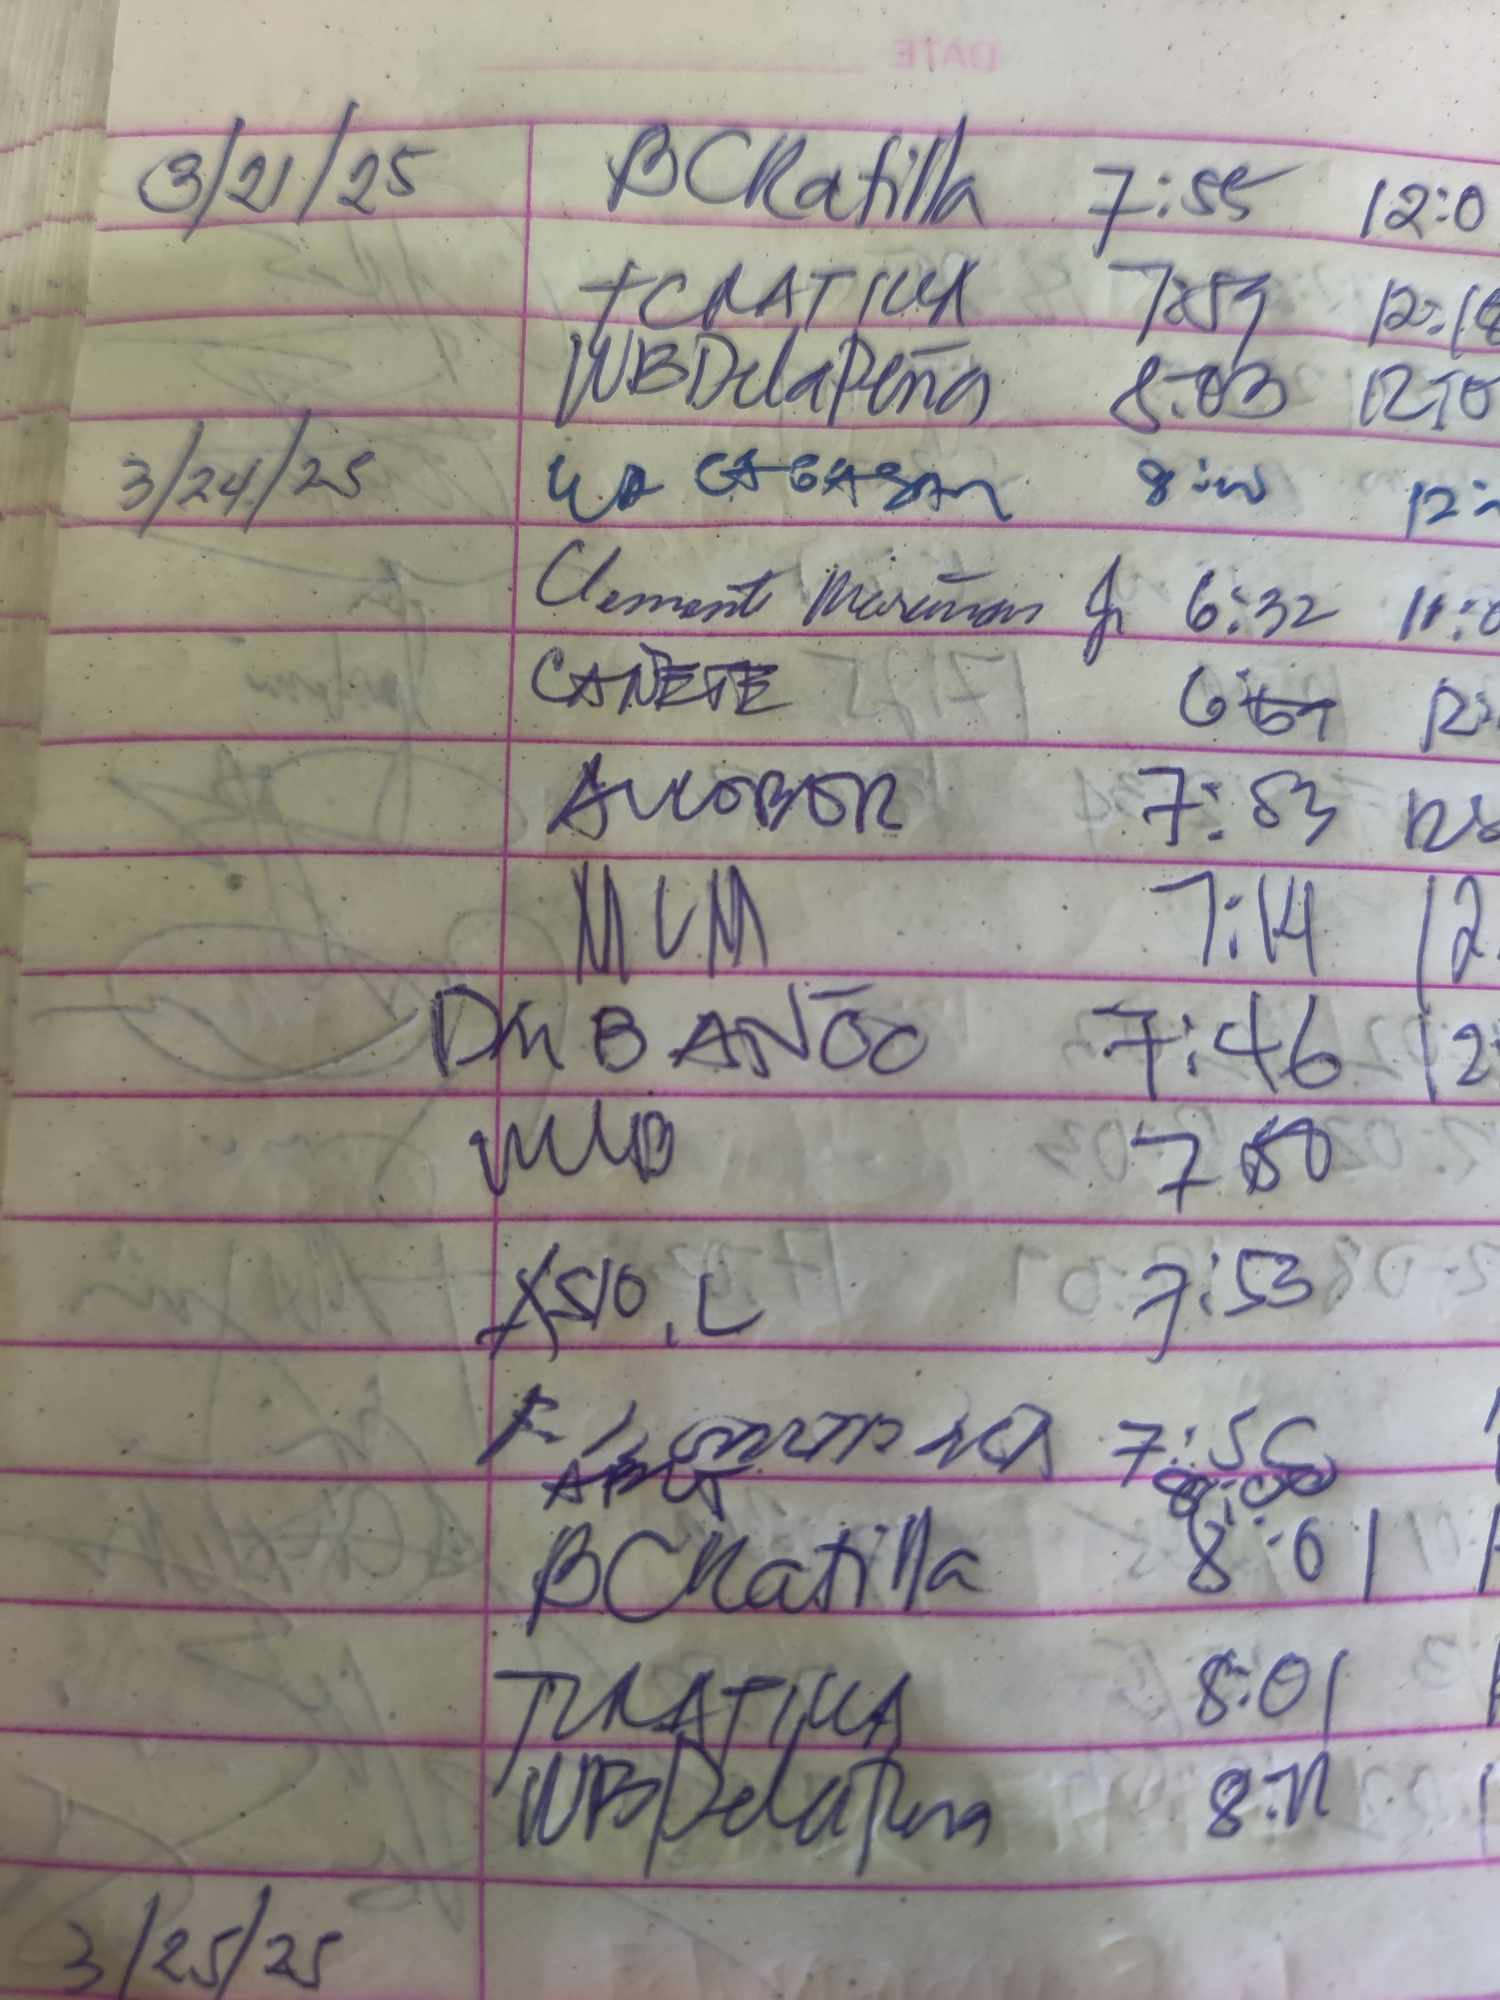 DATE
3/21/25 BCRatilla 7:55 12:0
TCRATILLA 7:59 12:10
WBDelaPeña 8:03 12:0
3/24/25 CABASAN 8:00 12:
Clemente Mariñas Jr 6:32 11:0
CAÑETE 6:57 12:
ALCOBER 7:53 12
MLM 7:14 12
BAÑOO 7:46 12
7:50
L 7:53
7:56
8:00
BCRatilla 8:01
TCRATILLA 8:01
WBDelaPena 8:11
3/25/25